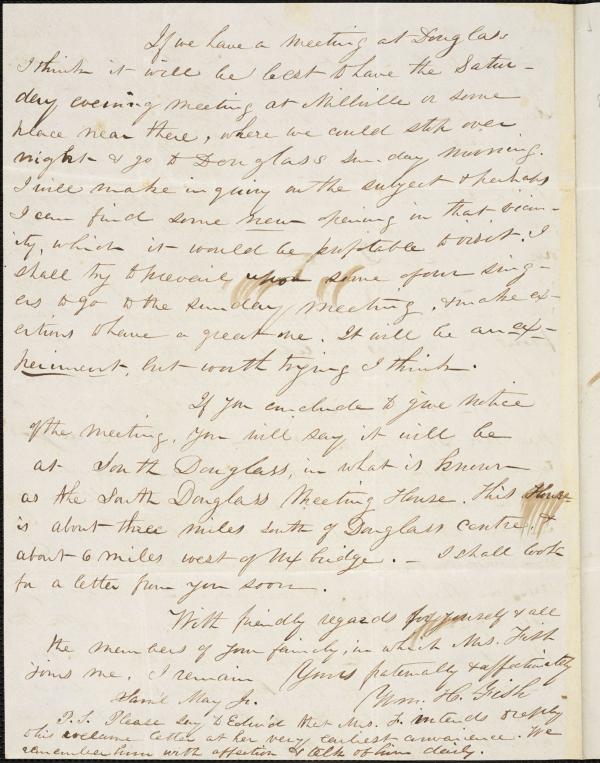 If we have a meeting at Douglass
I think it will be best to have the Satur-
day evening meeting at Millville or some
place near there, where we could stop over
night & go to Douglass Sunday morning.
I will make inquiry on the subject & perhaps
I can find some new opening in that vicin-
ity, which it would be profitable to visit. I
shall try to prevail upon some of our sing-
ers to go to the Sunday meeting, & make ex-
ertions to have a great one. It will be an ex-
periment, but worth trying I think.
If you conclude to give notice
of the meeting, you will say it will be
at South Douglass, in what is known
as the South Douglass Meeting House. This House
is about three miles south of Douglass centre, &
about 6 miles west of Uxbridge. - I shall look
for a letter from you soon.
With friendly regards for yourself & all
the members of your family, in which Mrs. Fish
joins me, I remain Yours fraternally & affectionately
Saml May Jr. Wm. H. Fish
P.S. Please say to Edw'd that Mrs. F. intends to reply
to his welcome letter at her very earliest convenience. We
remember him with affection & talk of him daily.